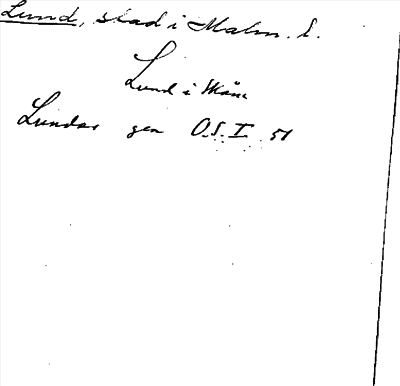 Lund, stad i Malm. l.
Lund i Skåne
Lundar gen O.S.I. 51